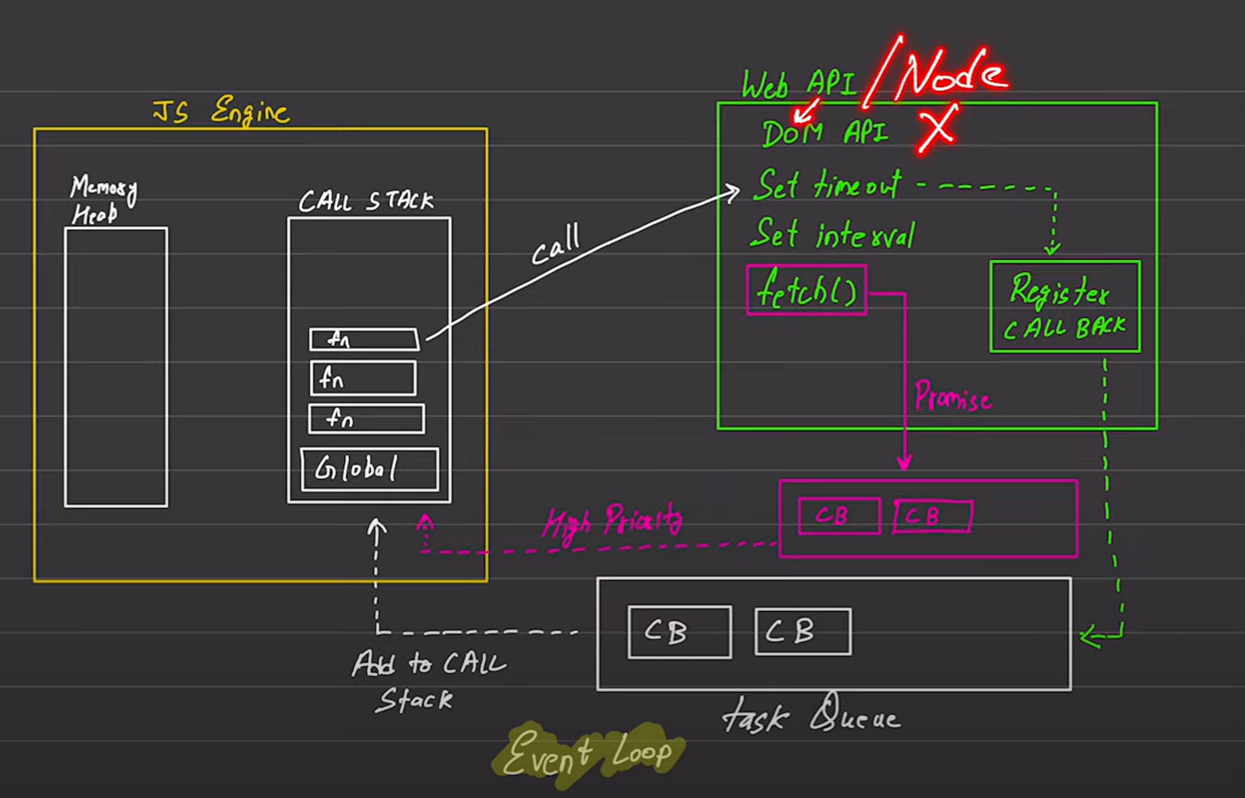 JS Engine
Memory
Heab
CALL STACK
fn
fn
fn
Global
call
Web API / Node
DOM API X
Set timeout
Set interval
fetch()
Register
CALL BACK
Promise
High Priority
CB CB
CB CB
Add to CALL
Stack
task Queue
Event Loop